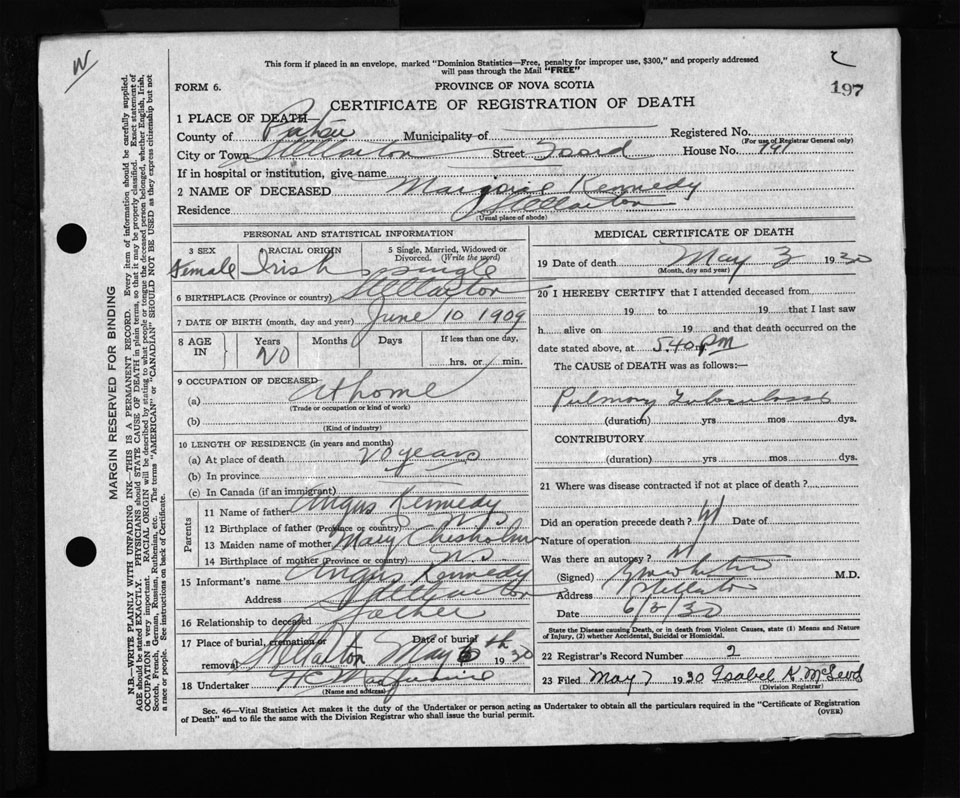 W
197
This form if placed in an envelope, marked "Dominion Statistics—Free, penalty for improper use, $300," and properly addressed
will pass through the Mail "FREE"
FORM 6.
PROVINCE OF NOVA SCOTIA
CERTIFICATE OF REGISTRATION OF DEATH
1 PLACE OF DEATH—
County of Pictou Municipality of Registered No.
(For use of Registrar General only)
City or Town Stellarton Street Foord House No. 191
If in hospital or institution, give name
2 NAME OF DECEASED Marjorie Kennedy
Residence Stellarton
(Usual place of abode)
PERSONAL AND STATISTICAL INFORMATION
3 SEX 4 RACIAL ORIGIN 5 Single, Married, Widowed or Divorced. (Write the word)
Female Irish single
6 BIRTHPLACE (Province or country) Stellarton
7 DATE OF BIRTH (month, day and year) June 10 1909
8 AGE IN Years Months Days If less than one day,
20 hrs. or min.
9 OCCUPATION OF DECEASED
(a) At home
(Trade or occupation or kind of work)
(b)
(Kind of industry)
10 LENGTH OF RESIDENCE (in years and months)
(a) At place of death 20 years
(b) In province
(c) In Canada (if an immigrant)
Parents
11 Name of father Angus Kennedy
12 Birthplace of father (Province or country) N.S
13 Maiden name of mother Mary Chesholm
14 Birthplace of mother (Province or country) N.S
15 Informant's name Angus Kennedy
Address Stellarton
16 Relationship to deceased Father
17 Place of burial, cremation or removal Stellarton Date of burial May 6th 1930
18 Undertaker H C
(Name and address)
MEDICAL CERTIFICATE OF DEATH
19 Date of death May 3 1930
(Month, day and year)
20 I HEREBY CERTIFY that I attended deceased from
19 to 19 that I last saw
h alive on 19 and that death occurred on
date stated above, at 5.40 pm
The CAUSE of DEATH was as follows:—
Pulmory Tuberculosis
(duration) yrs mos dys.
CONTRIBUTORY
(duration) yrs mos dys.
21 Where was disease contracted if not at place of death?
Did an operation precede death? N Date of
Nature of operation
Was there an autopsy? N
(Signed) M.D.
Address Stellarton
Date 6/5/30
State the Disease causing Death, or in death from Violent Causes, state (1) Means and Nature
of Injury, (2) whether Accidental, Suicidal or Homicidal.
22 Registrar's Record Number 2
23 Filed May 7 1930 Isabel K. McLeod
(Division Registrar)
Sec. 46—Vital Statistics Act makes it the duty of the Undertaker or person acting as Undertaker to obtain all the particulars required in the "Certificate of Registration
of Death" and to file the same with the Division Registrar who shall issue the burial permit.
(OVER)
MARGIN RESERVED FOR BINDING
N.B.—WRITE PLAINLY WITH UNFADING INK—THIS IS A PERMANENT RECORD. Every item of information should be carefully supplied.
AGE should be stated EXACTLY. PHYSICIANS should STATE CAUSE OF DEATH in plain terms, so that it may be properly classified. Exact statement of
OCCUPATION is very important. RACIAL ORIGIN will be described by stating to what people or tongue the deceased person belonged, whether English, Irish,
Scotch, French, German, Russian, Ruthenian, etc. The terms "AMERICAN" or "CANADIAN" SHOULD NOT BE USED as they express citizenship but not
a race or people. See instructions on back of Certificate.